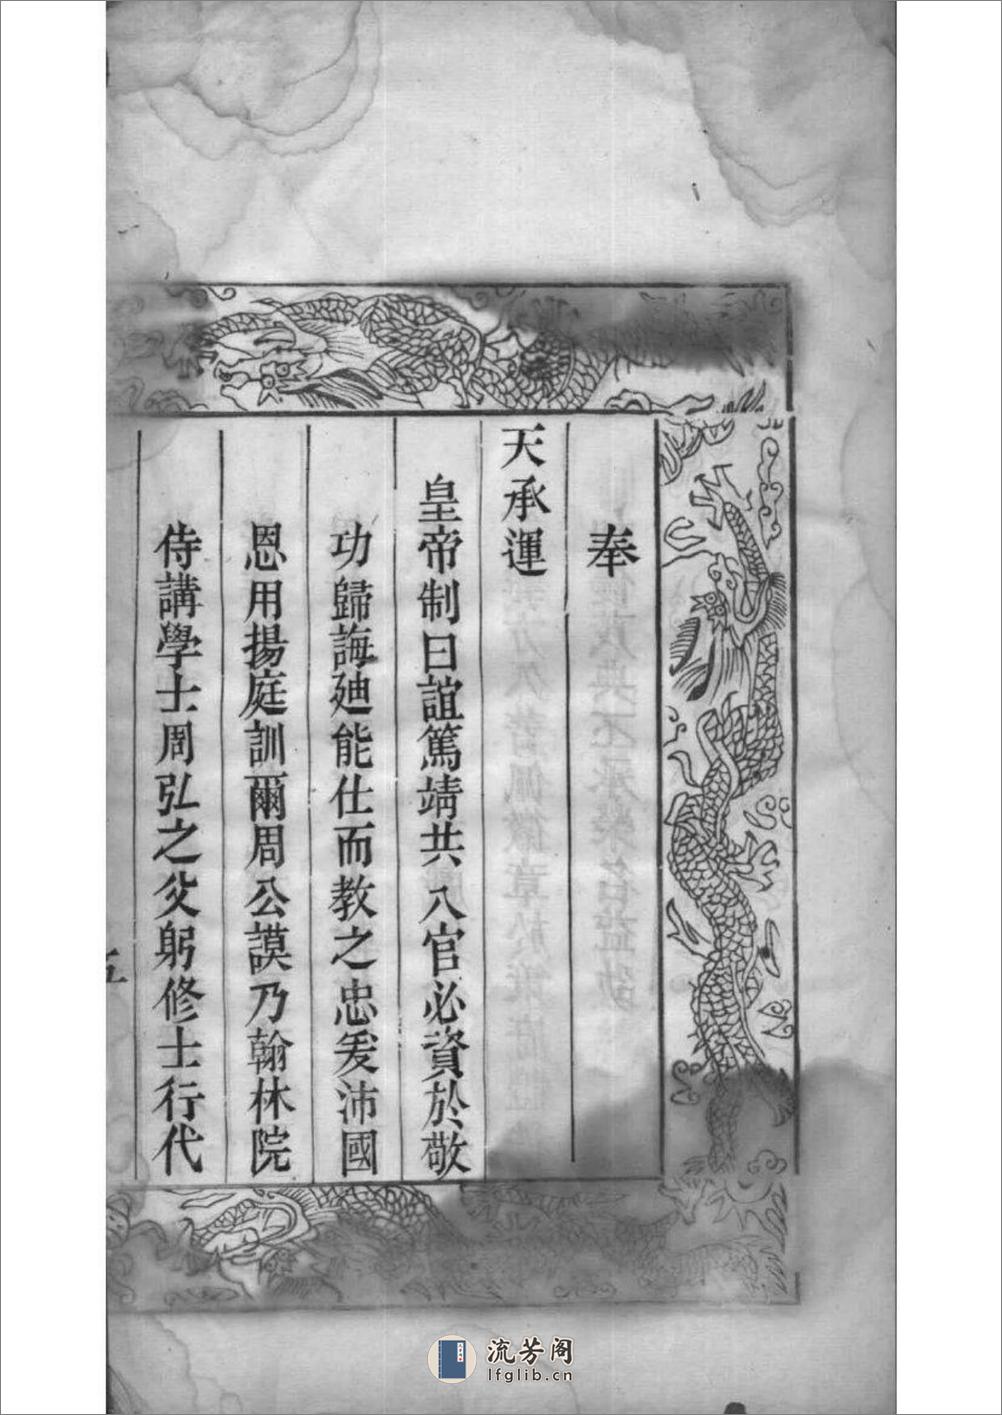 奉
天承運
皇帝制曰誼篤靖共入官必資於敬
功歸誨廸能仕而教之忠爰沛國
恩用揚庭訓爾周公謨乃翰林院
侍講學士周弘之父躬修士行代
五
流芳阁
lfglib.cn